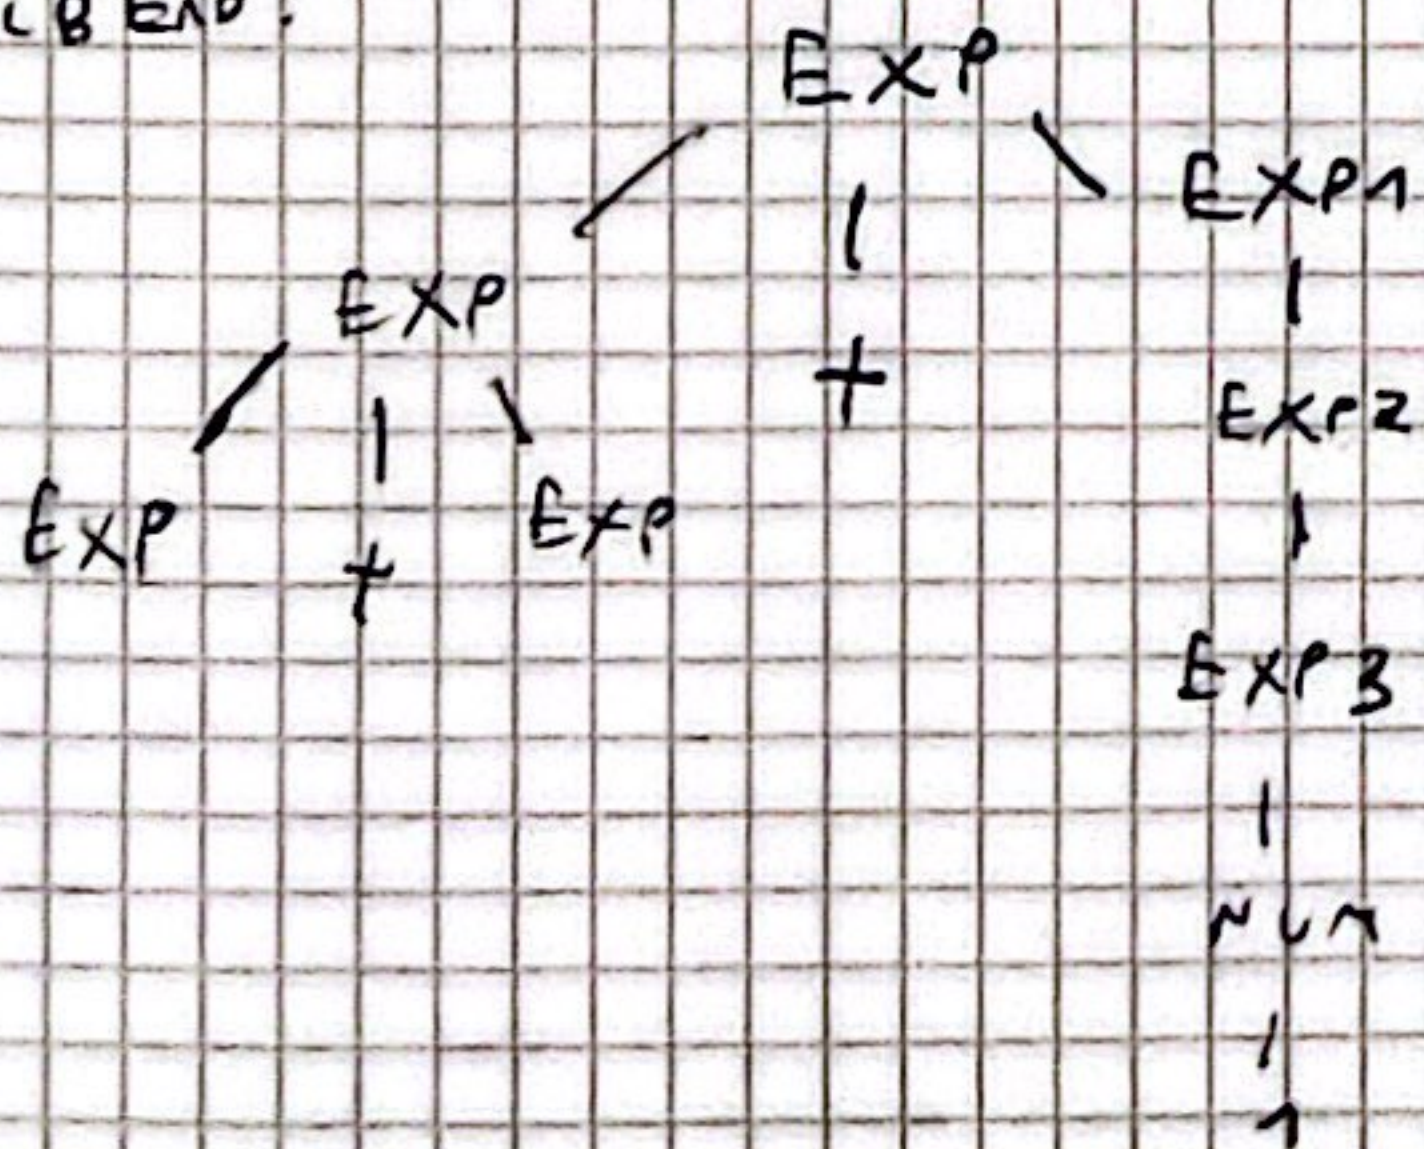 EXP
EXP1
EXP
+
EXP2
EXP
+
EXP
EXP3
NUM
1